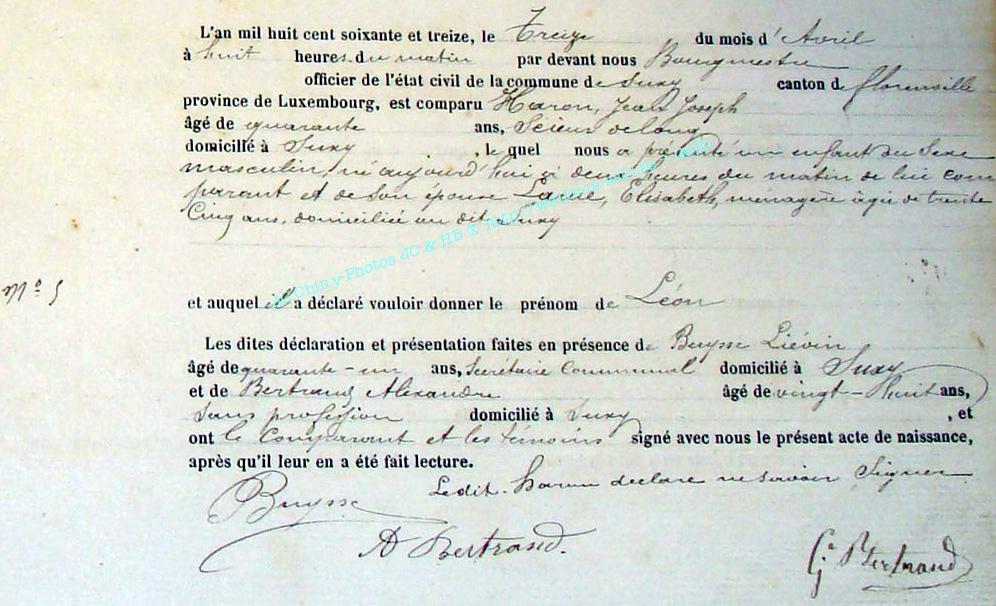 L'an mil huit cent soixante et treize, le Treize du mois d'Avril
à huit heures du matin par devant nous Bourgmestre
officier de l'état civil de la commune de Suxy canton de florenville
province de Luxembourg, est comparu Haron, Jean Joseph
âgé de quarante ans, Scieur de long
domicilié à Suxy , le quel nous a présenté un enfant du sexe
masculin, né aujourd'hui à deux heures du matin de lui com
parant et de son épouse Elisabeth, ménagère âgée de trente
Cinq ans, domiciliée au dit Suxy
N° 5
et auquel il a déclaré vouloir donner le prénom de Léon
Les dites déclaration et présentation faites en présence de Buysse Liévin
âgé de quarante-un ans, Secrétaire Communal domicilié à Suxy
et de Bertrand Alexandre âgé de vingt-huit ans,
Sans profession domicilié à Suxy , et
ont le Comparant et les témoins signé avec nous le présent acte de naissance,
après qu'il leur en a été fait lecture.
Ledit haron declare ne savoir Signer
Buysse
A Bertrand.
Bertrand
Chiny-Photos JC & HB ®